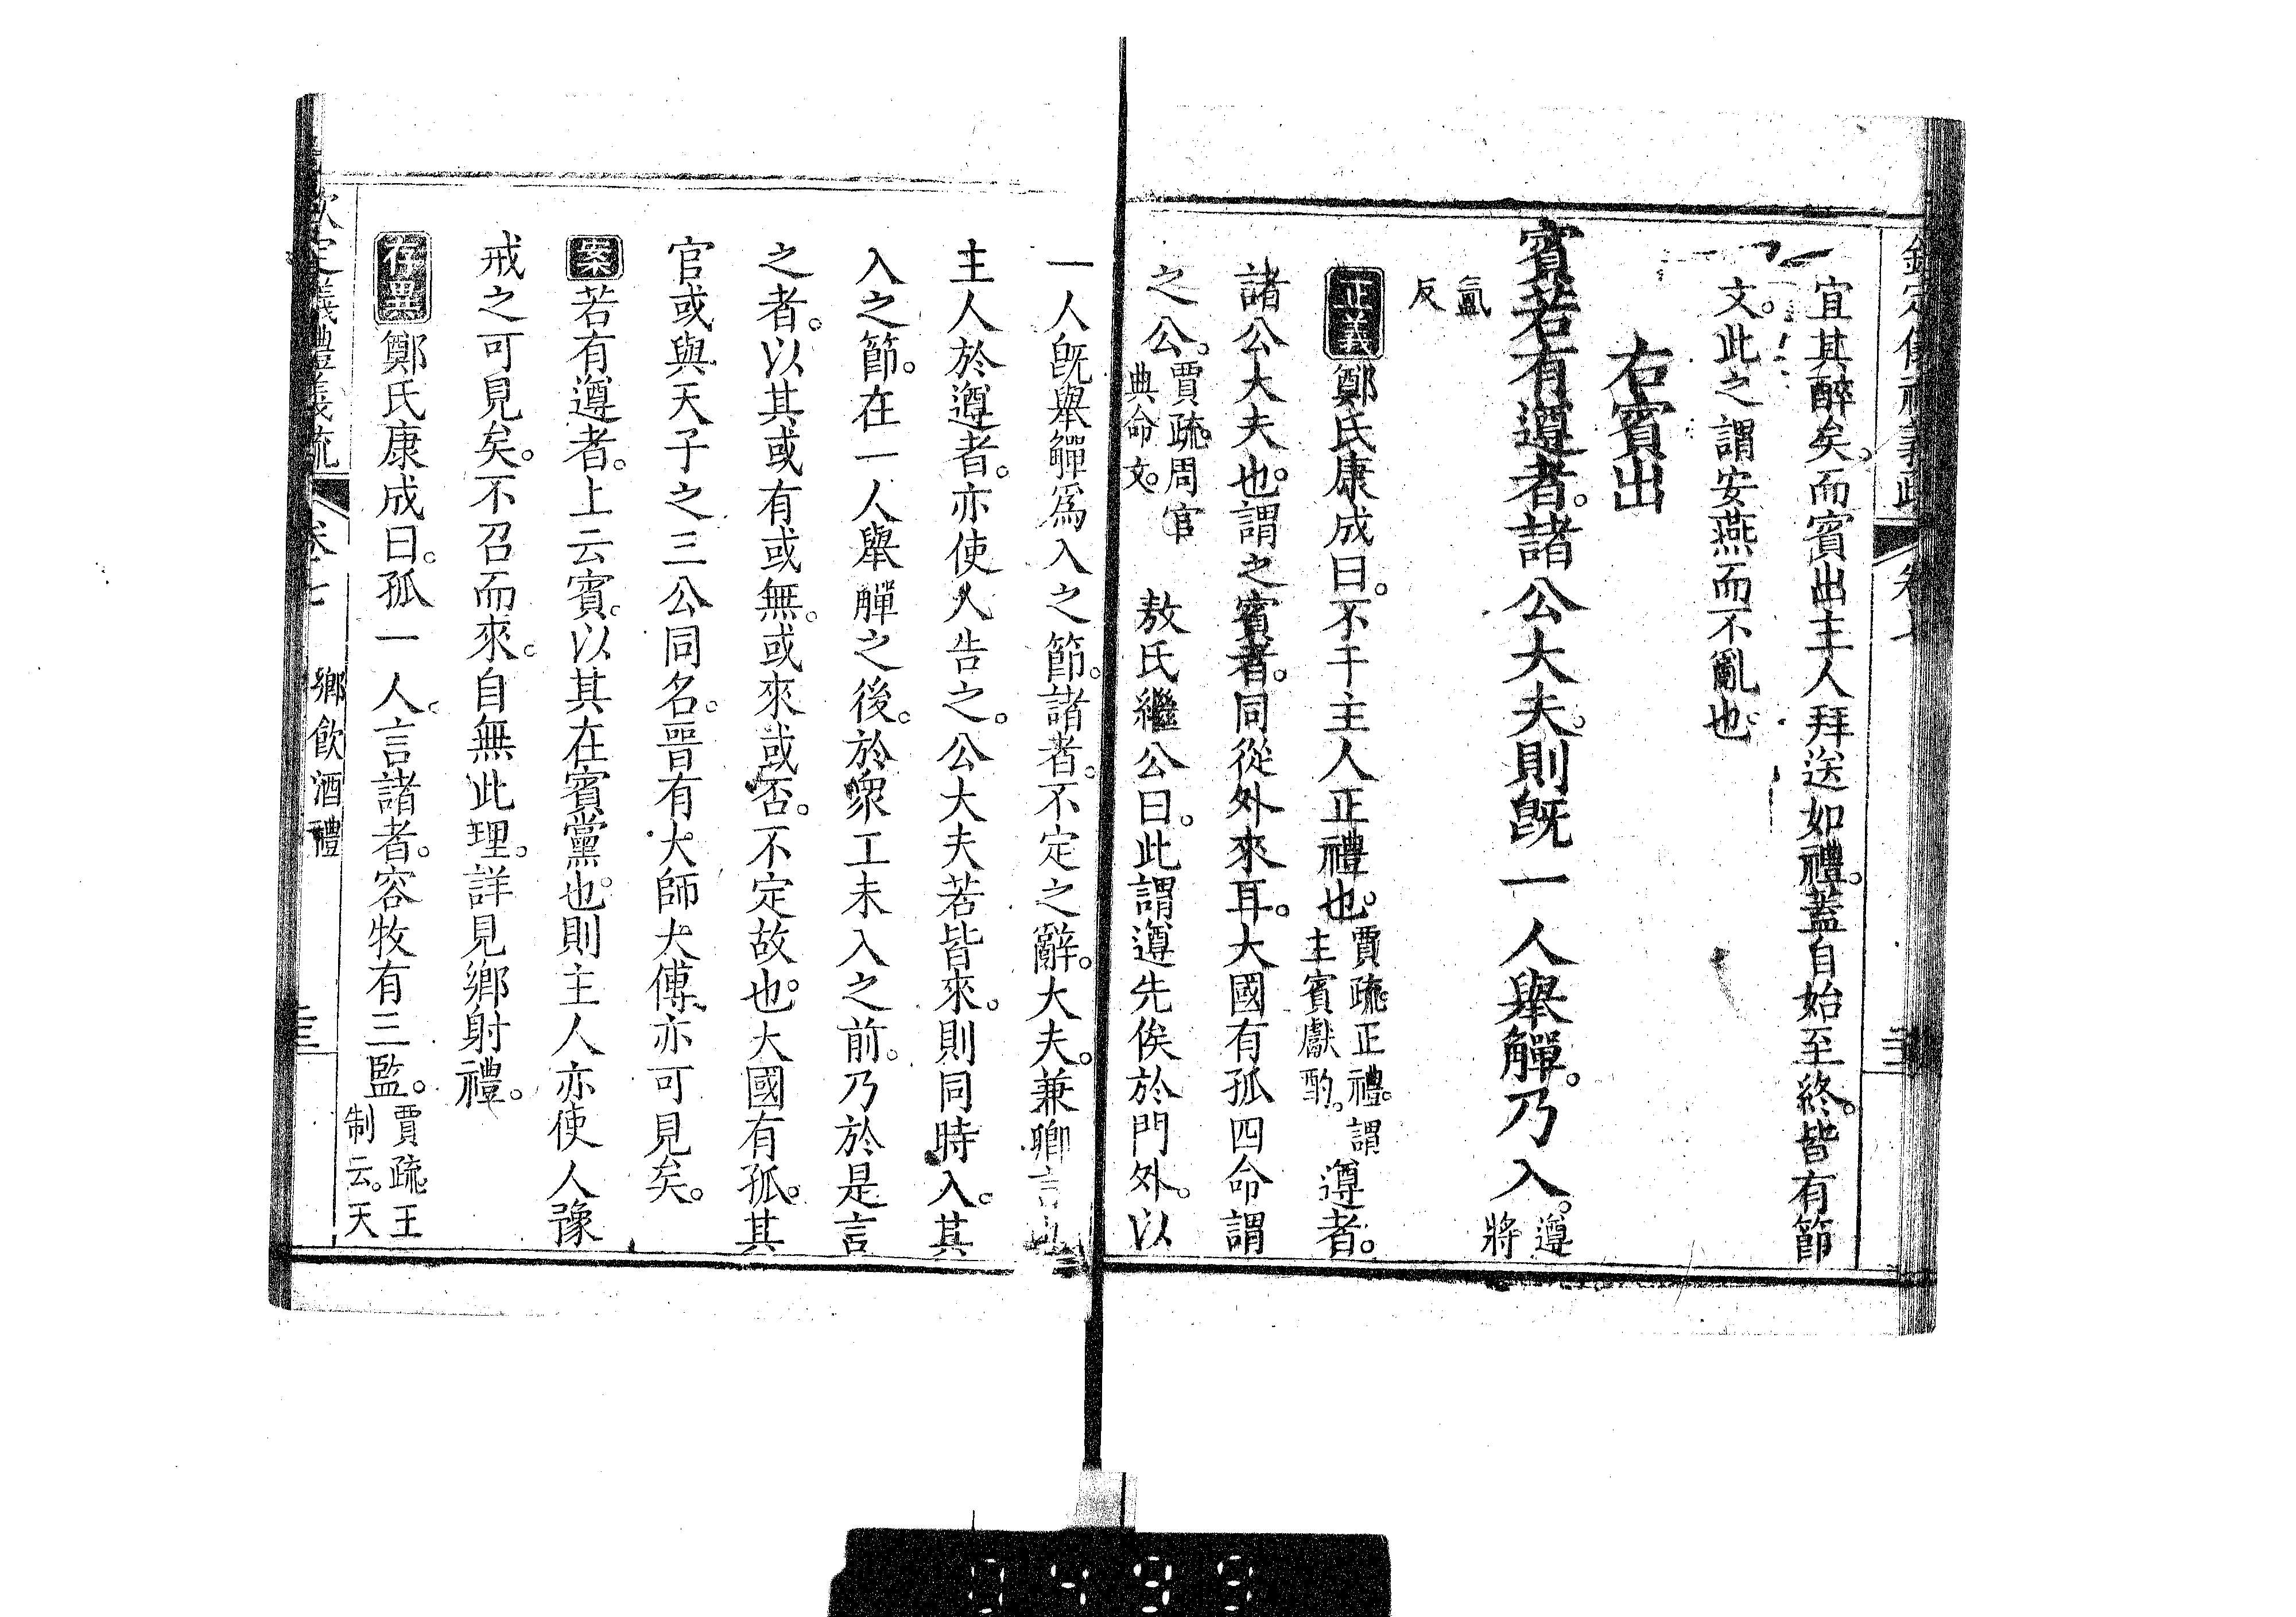 欽定儀禮義疏 卷七
宜其醉矣。而賓出主人拜送如禮。蓋自始至終。皆有節
文。此之謂安燕而不亂也。
右賓出
賓若有遵者。諸公大夫。則旣一人舉觶。乃入。遵將
氤反
正義鄭氏康成曰。不干主人正禮也。賈疏。正禮。謂主賓獻酌。遵者。
諸公大夫也。謂之賓者。同從外來耳。大國有孤四命謂
之公。賈疏。周官典命文。敖氏繼公曰。此謂遵先俟於門外。以
一人旣舉觶爲入之節。諸者。不定之辭。大夫。兼卿言也
主人於遵者。亦使人告之。公大夫若皆來。則同時入。其
入之節。在一人舉觶之後。於衆工未入之前。乃於是言
之者。以其或有或無。或來或否。不定故也。大國有孤。其
官或與天子之三公同名。晉有大師大傅。亦可見矣。
案若有遵者。上云賓。以其在賓黨也。則主人亦使人豫
戒之可見矣。不召而來。自無此理。詳見鄉射禮。
存異鄭氏康成曰。孤一人。言諸者。容牧有三監。賈疏。王制云。天
欽定儀禮義疏 卷七 鄉飲酒禮
0499